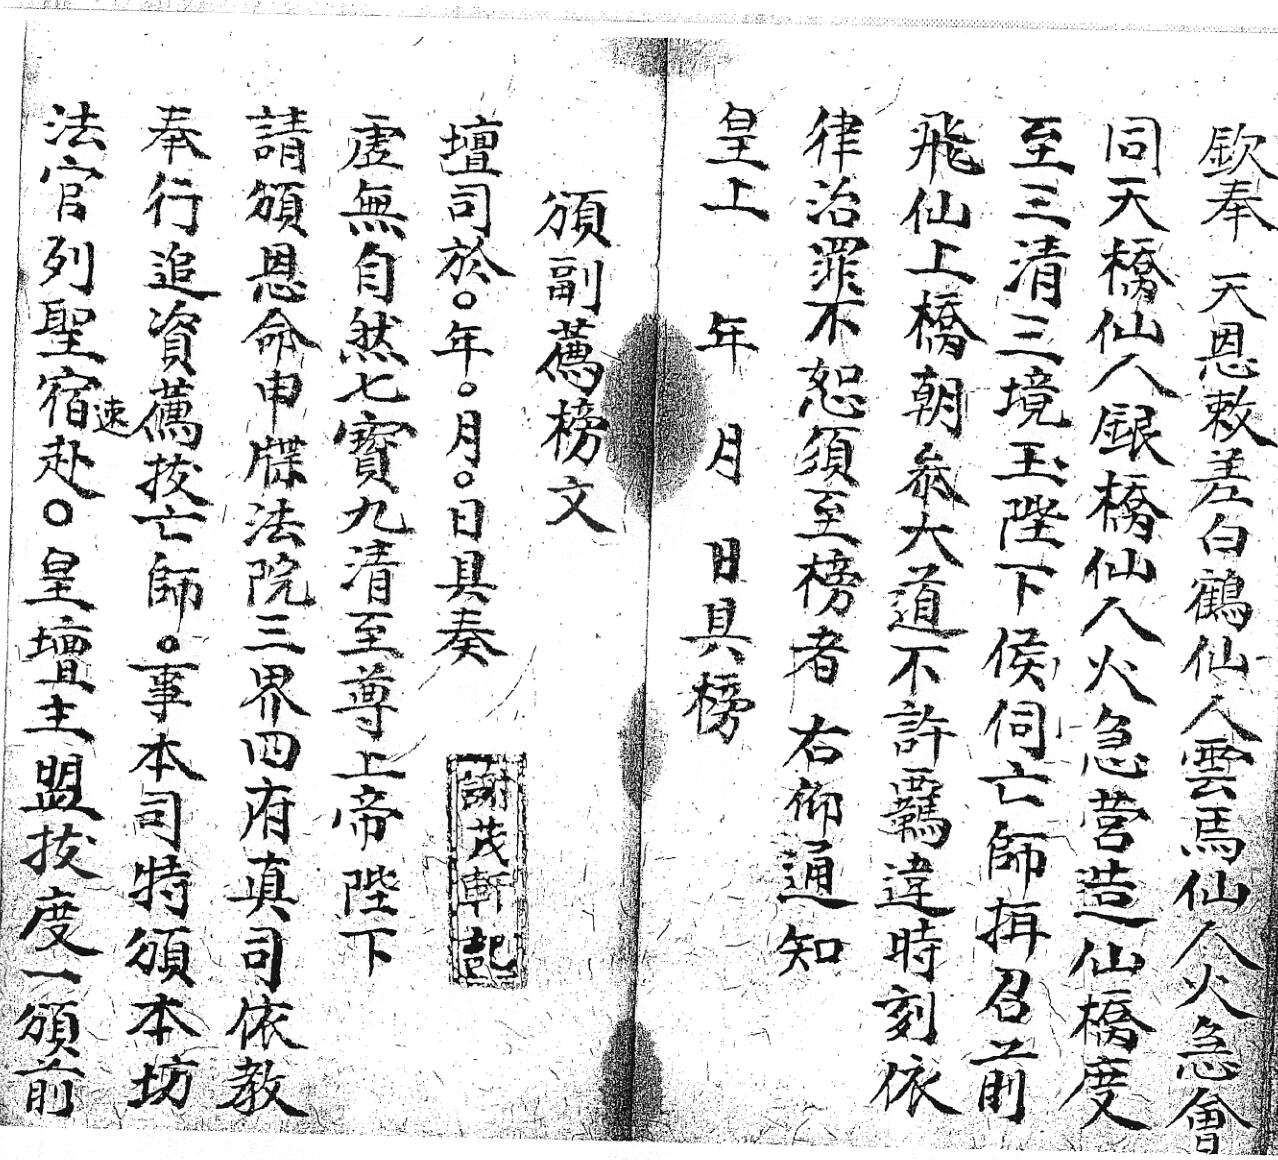 欽奉　天恩敕差白鶴仙人雲馬仙人火急會
同天橋仙人銀橋仙人火急營造仙橋度
至三清三境玉陛下侯伺亡師揖召前
飛仙上橋朝叅大道不許羈違時刻依
律治罪不恕須至榜者　右仰通知
皇上　年　月　日具榜
頒副薦榜文
壇司於○年○月○日具奏
謝茂軒記
虛無自然七寶九清至尊上帝陛下
請頒恩命申牒法院三界四府真司依教
奉行追資薦拔亡師○事本司特頒本坊
法官列聖宿速赴○皇壇主盟拔度一頒前